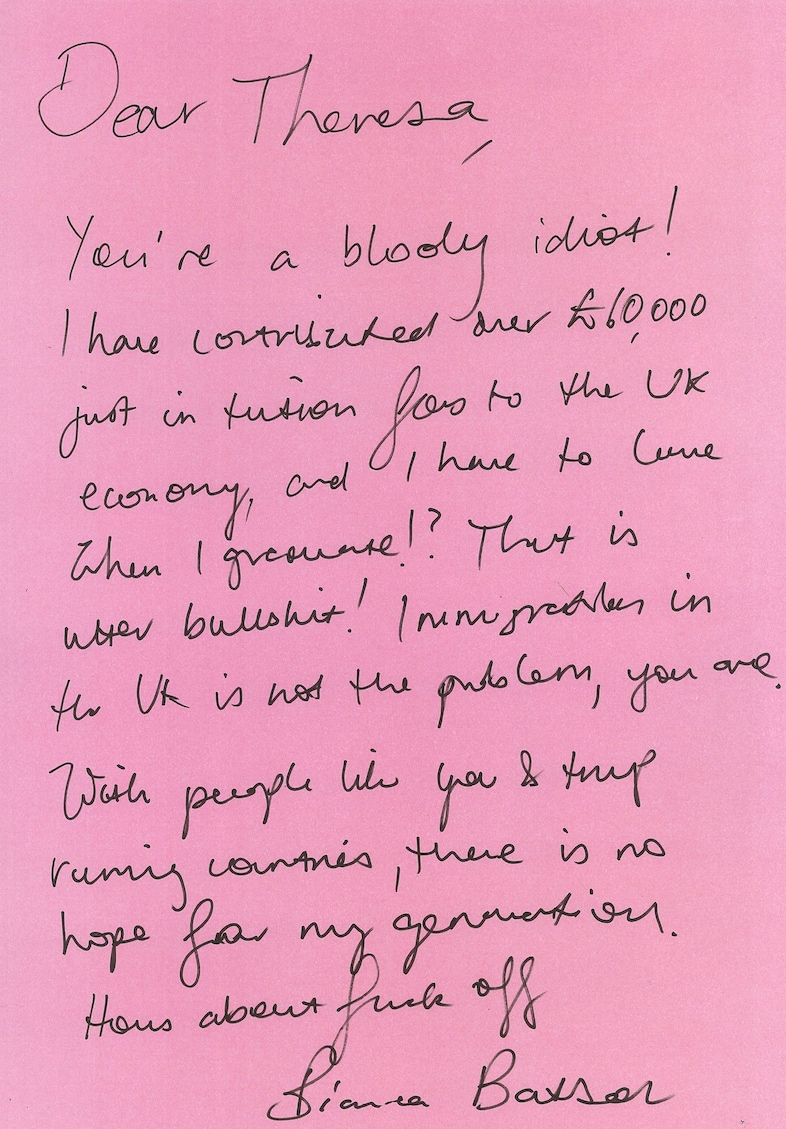 Dear Theresa,
You're a bloody idiot!
I have contributed over £60,000
just in tution fees to the UK
economy, and I have to leave
When I graduate!? That is
utter bullshit! Immigration in
the UK is not the problem, you are.
With people like you & trump
running countries, there is no
hope for my generation.
How about fuck off
Bianca